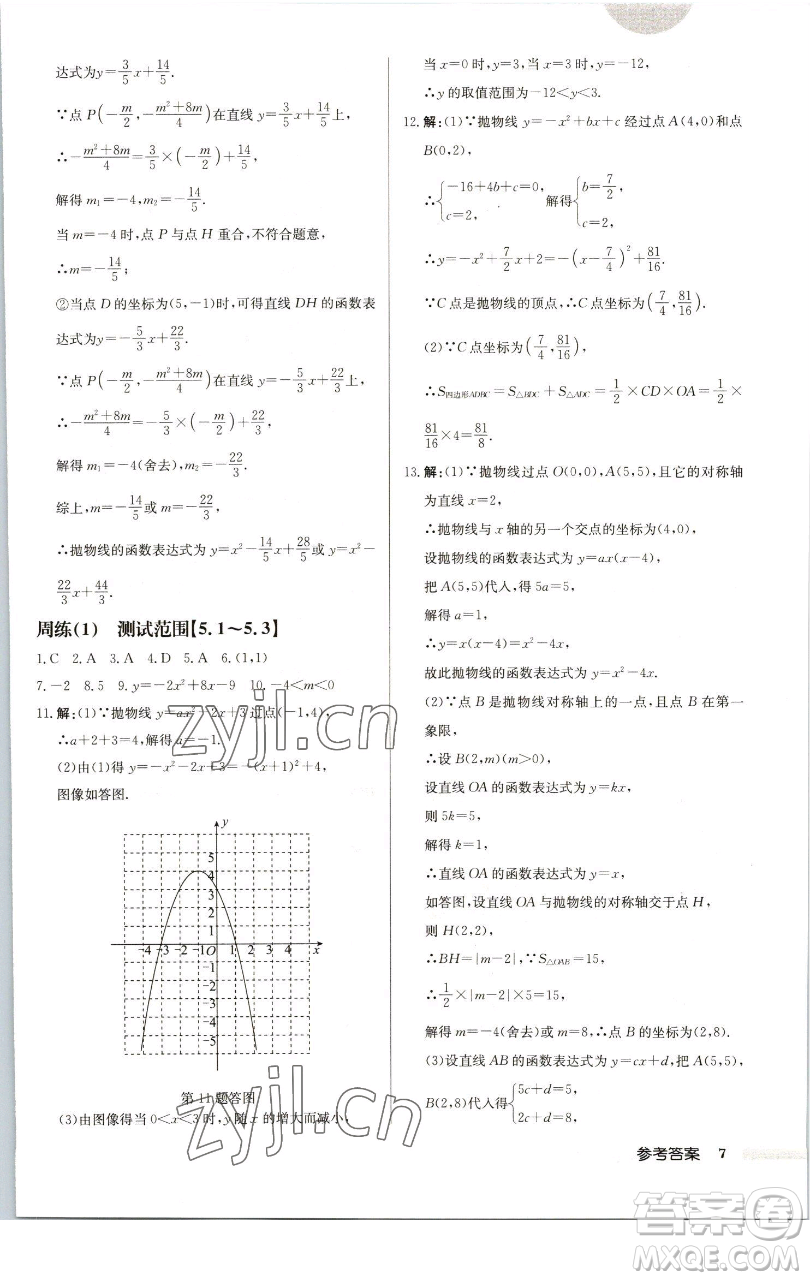 达式为y=3/5x+14/5.
∵点 P(-m/2,-(m²+8m)/4)在直线 y=3/5x+14/5上,
∴-(m²+8m)/4=3/5×(-m/2)+14/5,
解得 m₁=-4,m₂=-14/5.
当 m=-4 时,点 P 与点 H 重合,不符合题意,
∴m=-14/5;
②当点 D 的坐标为(5,-1)时,可得直线 DH 的函数表
达式为y=-5/3x+22/3.
∵点 P(-m/2,-(m²+8m)/4)在直线 y=-5/3x+22/3上,
∴-(m²+8m)/4=-5/3×(-m/2)+22/3,
解得 m₁=-4(舍去),m₂=-22/3.
综上,m=-14/5或 m=-22/3,
∴抛物线的函数表达式为 y=x²-14/5x+28/5或 y=x²-
22/3x+44/3.
周练(1) 测试范围【5.1～5.3】
1.C 2.A 3.A 4.D 5.A 6.(1,1)
7.-2 8.5 9.y=-2x²+8x-9 10.-4<m<0
11.解:(1)∵抛物线 y=ax²-2x+3过点(-1,4),
∴a+2+3=4,解得 a=-1.
(2)由(1)得 y=-x²-2x+3=-(x+1)²+4,
图像如答图.
y
5
4
3
2
1
-4 -3 -2 -1 O 1 2 3 4 x
-1
-2
-3
-4
-5
第 11 题答图
(3)由图像得当 0<x<3 时,y 随 x 的增大而减小,
当 x=0 时,y=3,当 x=3 时,y=-12,
∴y 的取值范围为-12<y<3.
12.解:(1)∵抛物线 y=-x²+bx+c 经过点 A(4,0)和点
B(0,2),
∴{-16+4b+c=0, c=2, 解得{b=7/2, c=2,
∴y=-x²+7/2x+2=-(x-7/4)²+81/16.
∵C 点是抛物线的顶点,∴C 点坐标为(7/4,81/16).
(2)∵C 点坐标为(7/4,81/16),
∴S四边形ADBC=S△BDC+S△ADC=1/2×CD×OA=1/2×
81/16×4=81/8.
13.解:(1)∵抛物线过点 O(0,0),A(5,5),且它的对称轴
为直线 x=2,
∴抛物线与 x 轴的另一个交点的坐标为(4,0),
设抛物线的函数表达式为 y=ax(x-4),
把 A(5,5)代入,得 5a=5,
解得 a=1,
∴y=x(x-4)=x²-4x,
故此抛物线的函数表达式为 y=x²-4x.
(2)∵点 B 是抛物线对称轴上的一点,且点 B 在第一
象限,
∴设 B(2,m)(m>0),
设直线 OA 的函数表达式为 y=kx,
则 5k=5,
解得 k=1,
∴直线 OA 的函数表达式为 y=x,
如答图,设直线 OA 与抛物线的对称轴交于点 H,
则 H(2,2),
∴BH=|m-2|,∵S△OAB=15,
∴1/2×|m-2|×5=15,
解得 m=-4(舍去)或 m=8,∴点 B 的坐标为(2,8).
(3)设直线 AB 的函数表达式为 y=cx+d,把 A(5,5),
B(2,8)代入得{5c+d=5, 2c+d=8,
参考答案 7
zyjl.cn
zyjl.cn
答案圈
MXQE.COM